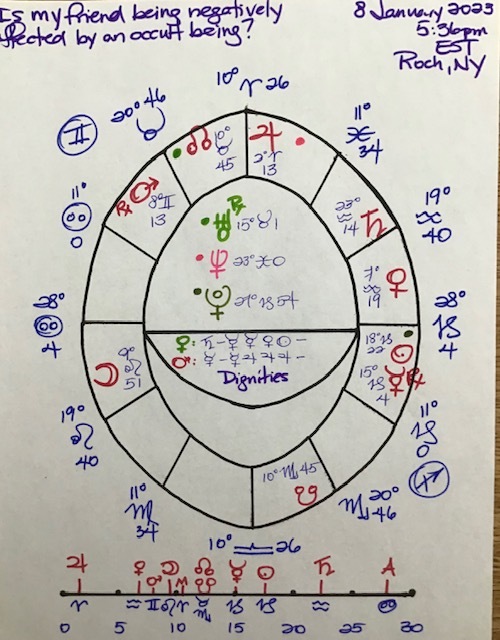 Is my friend being negatively
ffected by an occult being?
8 January 2023
5:36pm
EST
Roch, NY
10° ♈ 26
20° 46
♉
11°
♓
34
♊
☊ 10°
♉
45
♃
2° ♈
13
11°
♋
0
℞ ♂
8° ♊
13
23°
♒
14 ♄
19°
♒
40
♅ ℞ 15° ♉ 1
♆ 23° ♓ 0
♇ 27° ♑ 54
7°
♒
19
♀
28°
♋
4
28°
♑
4
♀: ♄ - ☿ ☿ ♀ ☉ -
♂: ☿ - ☿ ♃ ♃ ♃ -
Dignities
18° ♑
22 ☉
15°
♑
4 ☿ ℞
☽ 9°
♌
51
19°
♌
40
11°
♑
0
♐
11°
♍
34
10° ♏ 45
☋
♏ 20°
46
10° ♎ 26
♃ ♀ ♂ ☽ M ☊ ☋ ☿ ☉ ♄ A
♈ ♒ ♊ ♌ ♈ ♉ ♏ ♑ ♑ ♒ ♋
0 5 10 15 20 25 30